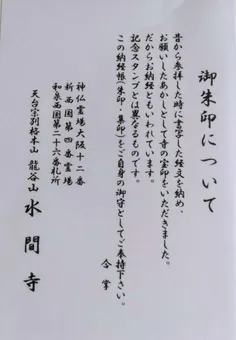 御朱印について
昔から参拝した時に書写した経文を納め、
お願いしたあかしとして寺の宝印をいただきました。
だからお納経ともいわれています。
記念スタンプとは異なるものです。
この納経帳(朱印・集印)をご自身の御守としてご奉持下さい。
合掌
神仏霊場大阪十二番
新西国第四番霊場
和泉西国第二十六番札所
天台宗別格本山 龍谷山 水間寺